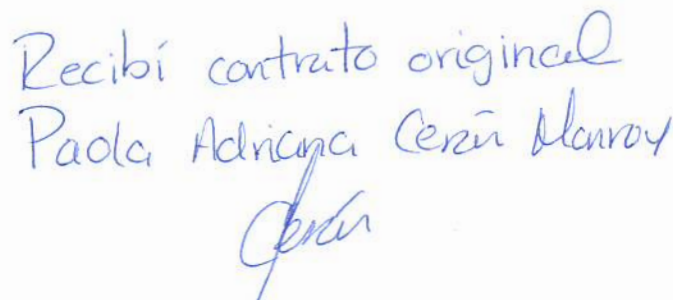 Recibí contrato original
Paola Adriana Cerón Monroy
Cerón